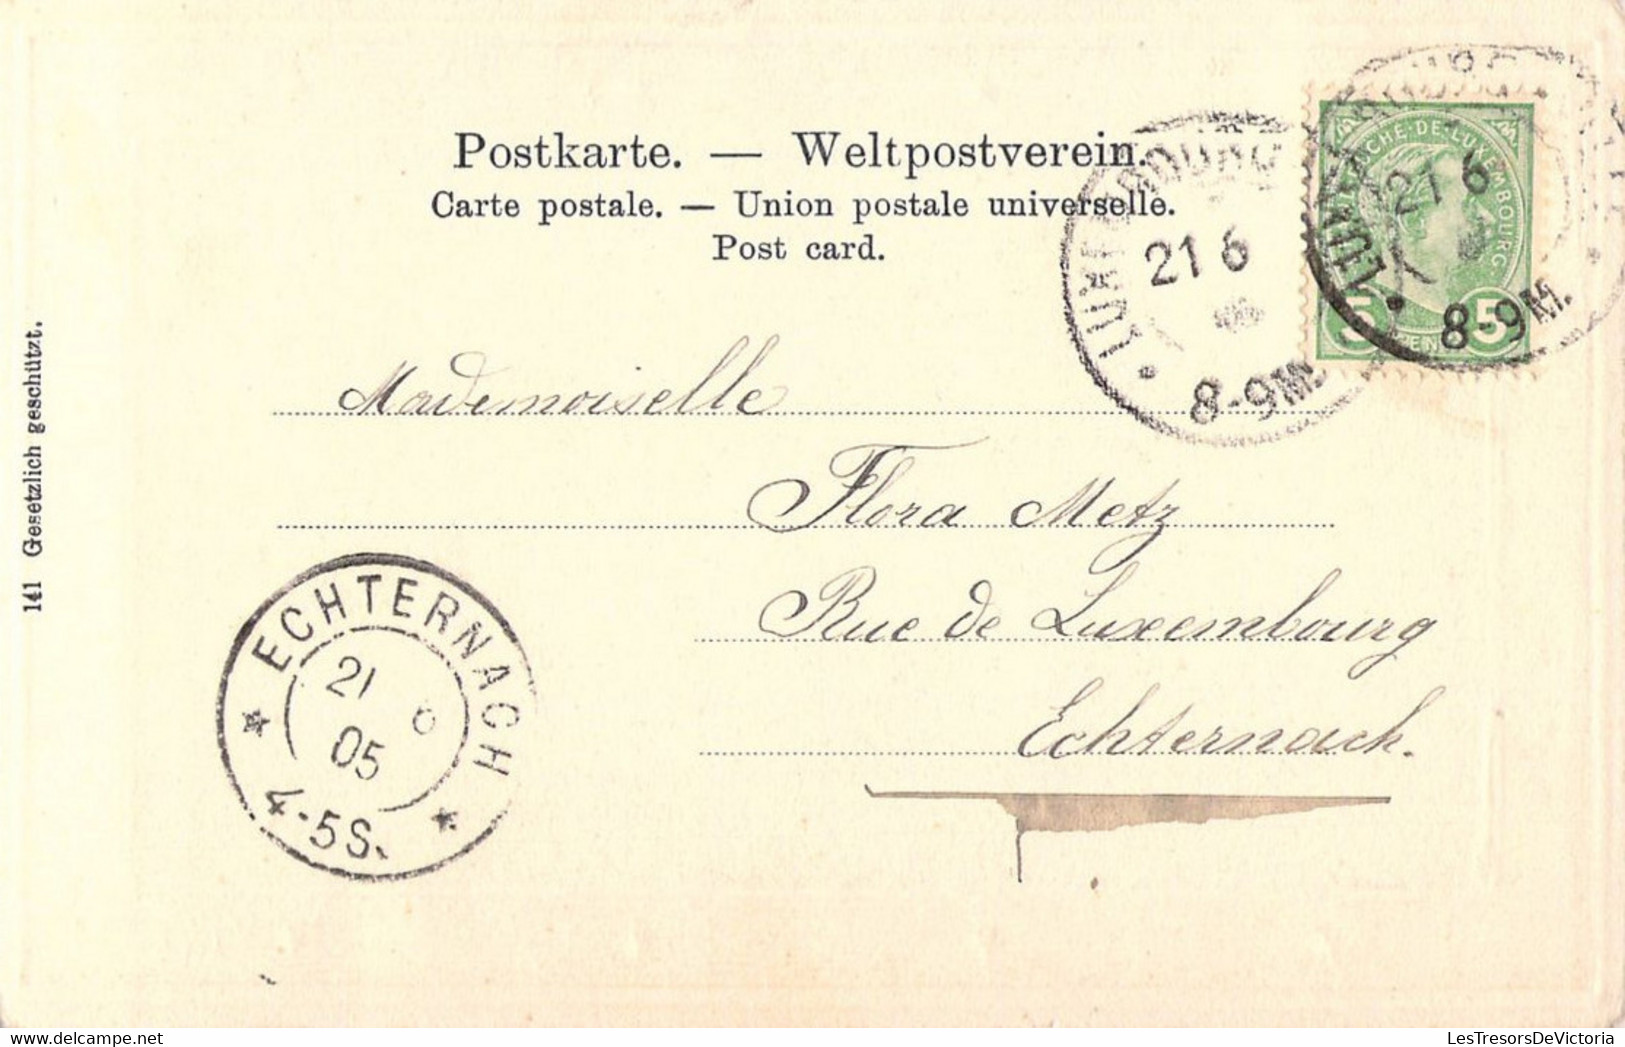 Postkarte. — Weltpostverein.
Carte postale. — Union postale universelle.
Post card.
LUXEMBOURG
21 6
8-9M.
LUXEMBOURG
21 6
8-9M.
DUCHÉ·DE·LUXEMBOURG·
5 5
141 Gesetzlich geschützt.
Mademoiselle
Flora Metz
Rue de Luxembourg
Echternach.
ECHTERNACH
21 6
05
4-5S.
LesTresorsDeVictoria
www.delcampe.net